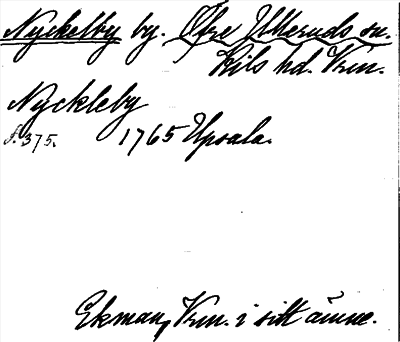 Nyckelby by. Öfre Ulleruds sn.
Kils hd. Vrm.
Nyckleby
s. 375. 1765 Upsala.
Ekman, Vrm. i sitt ämne.